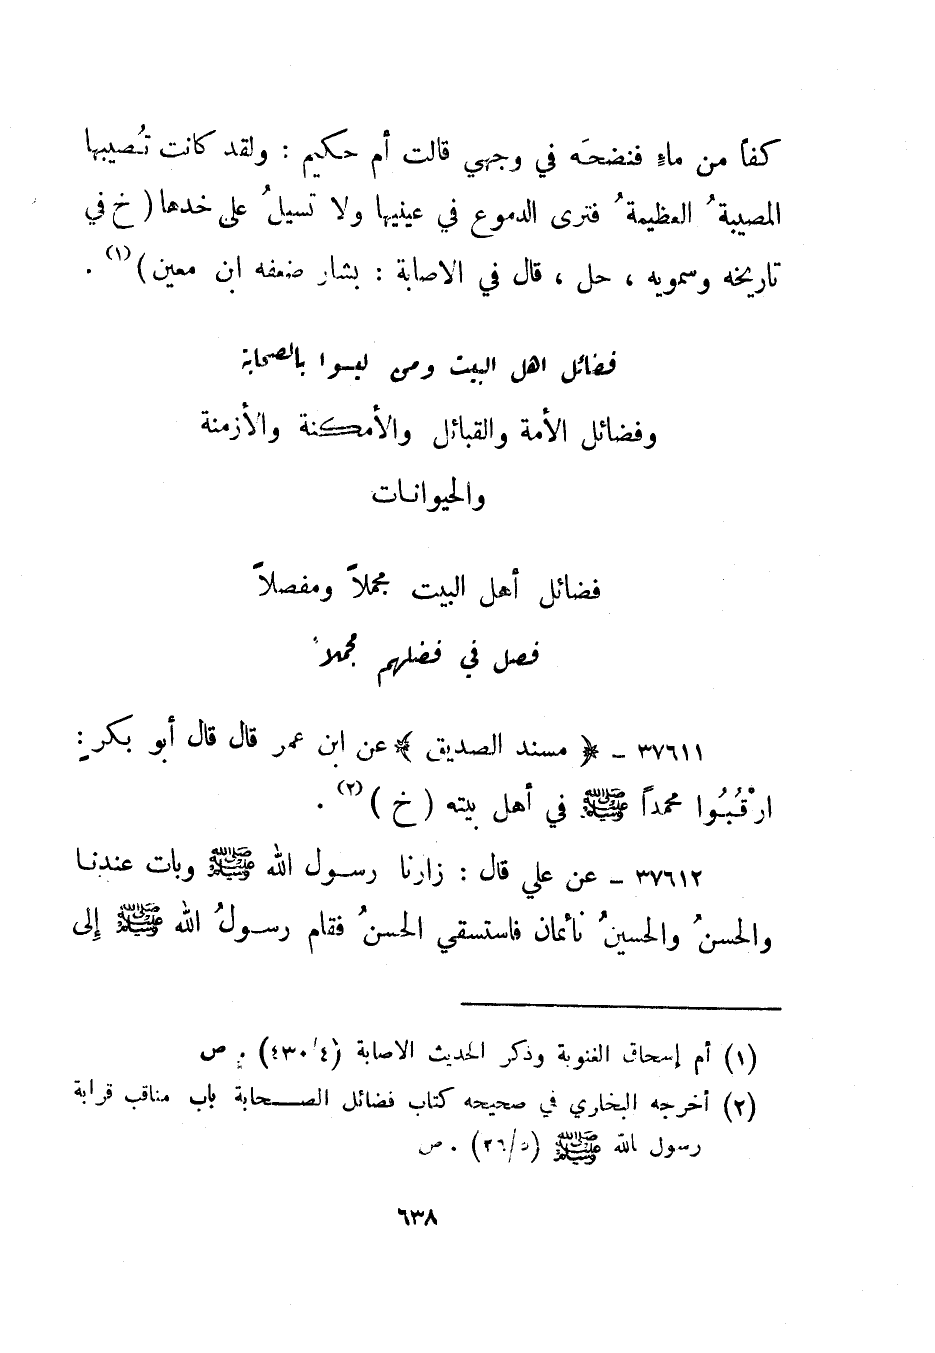 كفاً من ماءٍ فنضحَه في وجهي قالت أم حكيم : ولقد كانت تُصيبها
المصيبةُ العظيمةُ فترى الدموع في عينيها ولا تسيلُ على خدها ( خ في
تاريخه وسمويه ، حل ، قال في الاصابة : بشار ضعفه ابن معين ) (١) .
فضائل اهل البيت ومن ليسوا بالصحابة
وفضائل الأمة والقبائل والأمكنة والأزمنة
والحيوانات
فضائل أهل البيت مجملاً ومفصلاً
فصل في فضلهم مجملاً
٣٧٦١١ ـ ﴿ مسند الصديق ﴾ عن ابن عمر قال قال أبو بكرٍ :
ارْقُبُوا محمداً ﷺ في أهل بيته ( خ ) (٢) .
٣٧٦١٢ ـ عن علي قال : زارنا رسول الله ﷺ وبات عندنا
والحسنُ والحسينُ نائمان فاستسقي الحسنُ فقام رسولُ الله ﷺ إلى
(١) أم إسحاق الغنوية وذكر الحديث الاصابة (٤/٤٣٠) . ص
(٢) أخرجه البخاري في صحيحه كتاب فضائل الصحابة باب مناقب قرابة
رسول الله ﷺ (٥/٢٦) . ص
٦٣٨